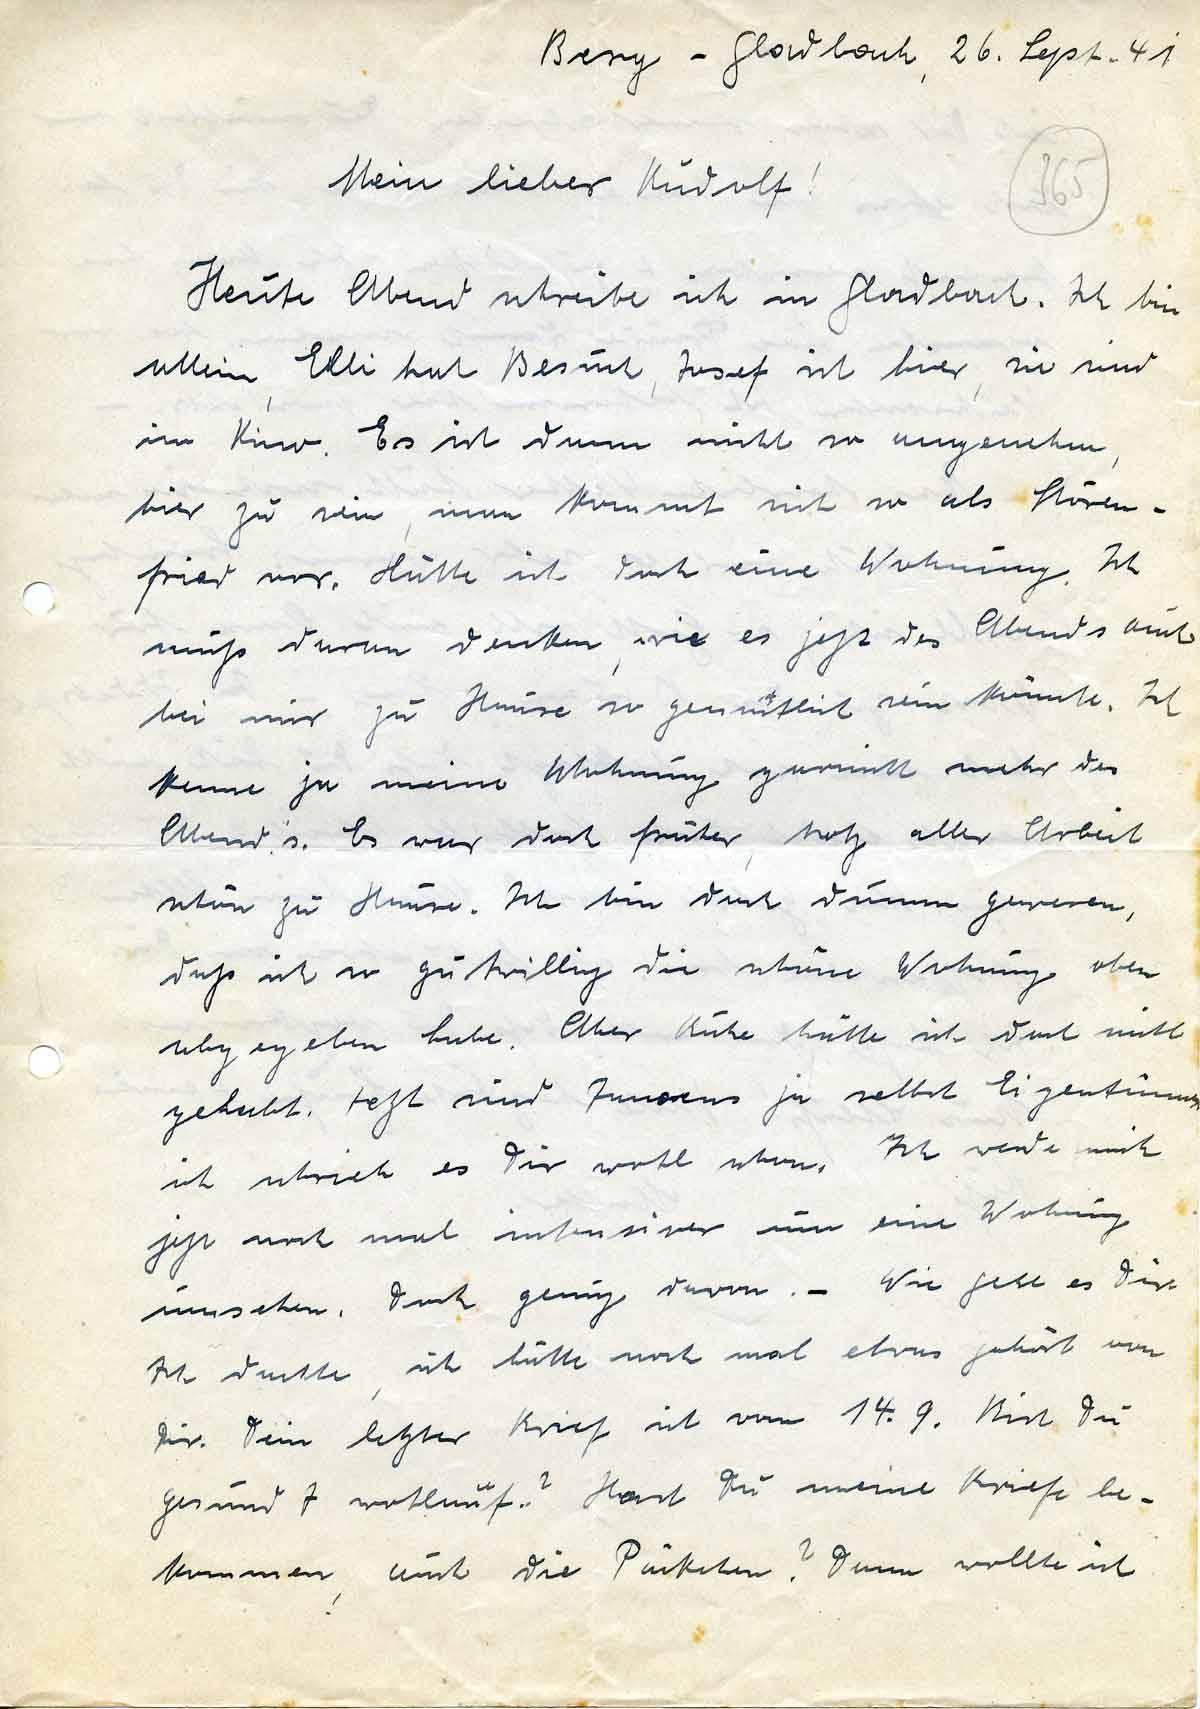 Berg - Gladbach, 26. Sept. 41
365
Mein lieber Rudolf!
Heute Abend schreibe ich in Gladbach. Ich bin
allein, Elli hat Besuch, Josef ist hier, sie sind
im Kino. Es ist dann nicht so angenehm,
hier zu sein, man kommt sich so als Stören-
fried vor. Hätte ich doch eine Wohnung. Ich
muß daran denken, wie es jetzt des Abends auch
bei mir zu Hause so gemütlich sein könnte. Ich
kenne ja meine Wohnung garnicht mehr des
Abend's. Es war doch früher, trotz aller Arbeit
schön zu Hause. Ich bin doch dumm gewesen,
daß ich so gutwillig die schöne Wohnung oben
abgegeben habe. Aber Ruhe hätte ich doch nicht
gehabt. Jetzt sind Jansens ja selbst Eigentümer
ich schrieb es Dir wohl schon. Ich werde mich
jetzt noch mal intensiver um eine Wohnung
umsehen. Doch genug davon. - Wie geht es Dir
Ich dachte, ich hätte noch mal etwas gehört von
Dir. Dein letzter Brief ist vom 14. 9. Bist Du
gesund & wohlauf.? Hast Du meine Briefe be-
kommen, auch die Päckchen? Dann wollte ich